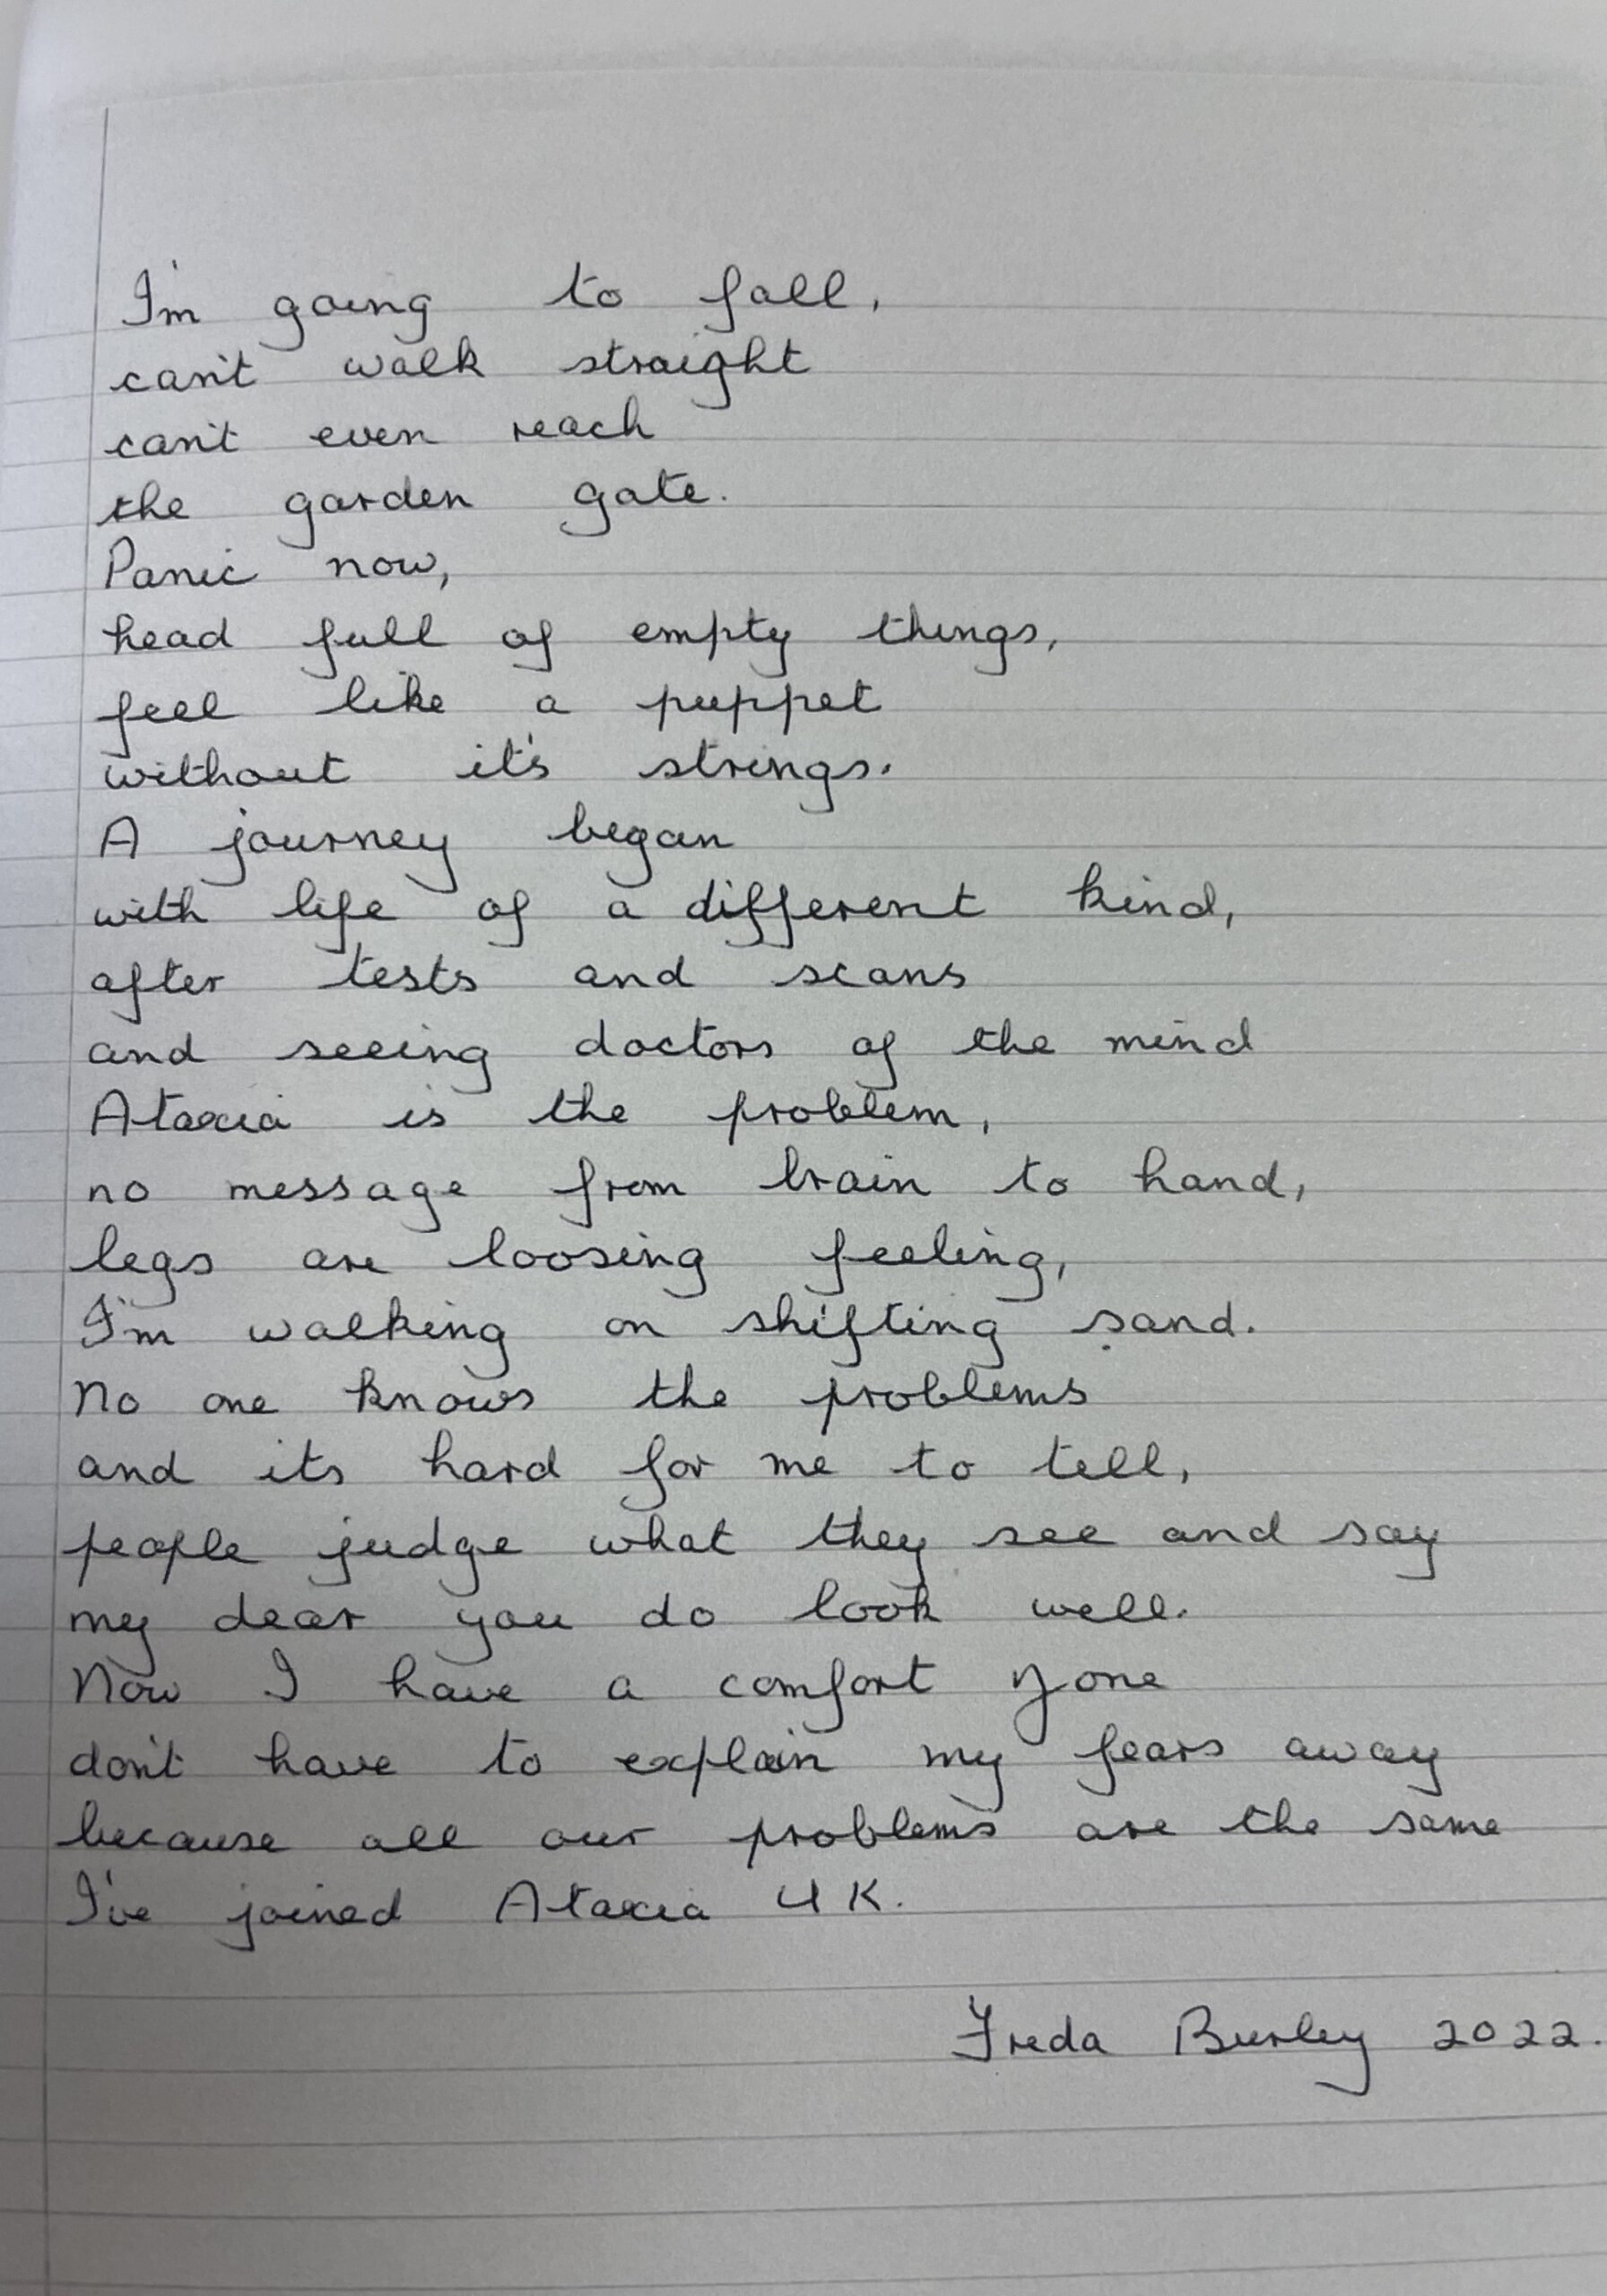 I'm going to fall,
can't walk straight
can't even reach
the garden gate.
Panic now,
head full of empty things,
feel like a puppet
without it's strings.
A journey began
with life of a different kind,
after tests and scans
and seeing doctors of the mind
Ataxia is the problem,
no message from brain to hand,
legs are loosing feeling,
I'm walking on shifting sand.
No one knows the problems
and its hard for me to tell,
people judge what they see and say
my dear you do look well.
Now I have a comfort zone
don't have to explain my fears away
because all our problems are the same
I've joined Ataxia UK.
Freda Burley 2022.